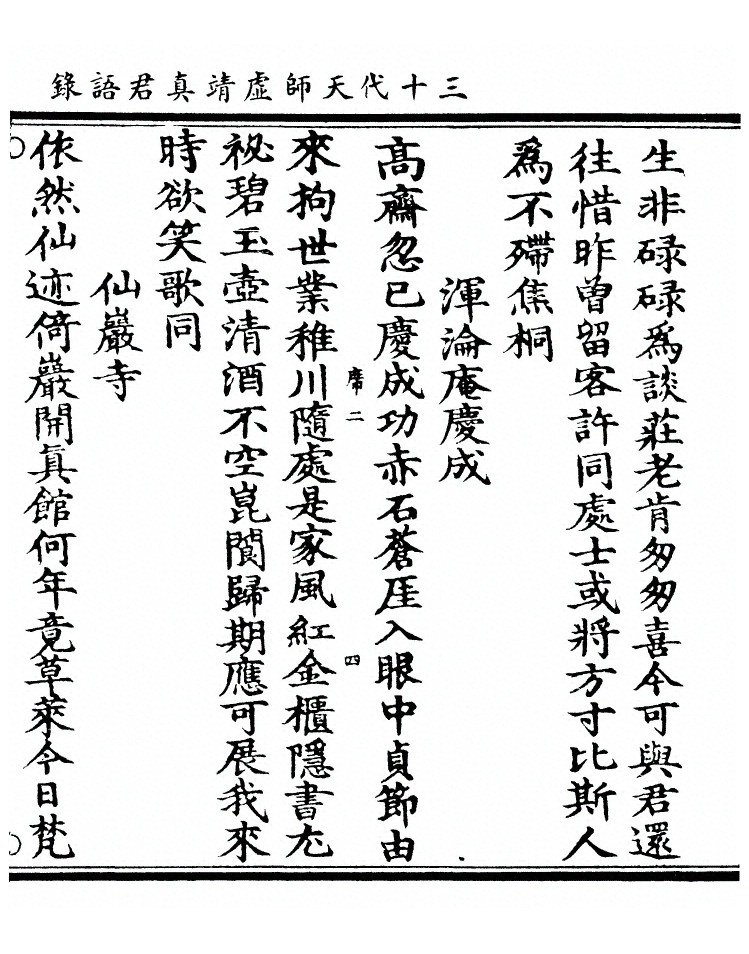 三十代天師虛靖真君語錄
生非碌碌爲談莊老肯匆匆喜今可與君還
往惜昨曾留客許同處士或將方寸比斯人
爲不殢焦桐
渾淪庵慶成
高齋忽已慶成功赤石蒼厓入眼中貞節由
席二
四
來拘世業稚川隨處是家風紅金櫃隱書尤
祕碧玉壺清酒不空崑閬歸期應可展我來
時欲笑歌同
仙巖寺
依然仙迹倚巖開真館何年竟草萊今日梵